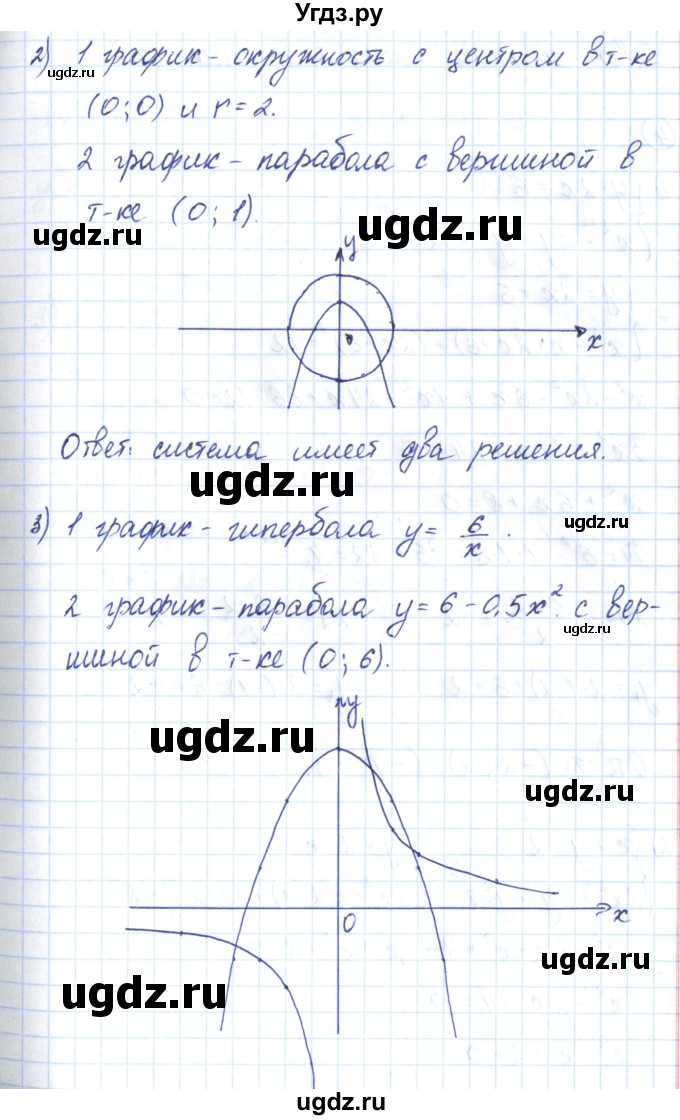 Угдз.ру
2) 1 график - окружность с центром в т-ке
ugdz.ru
(0; 0) и r = 2.
2 график - парабола с вершиной в
т-ке (0; 1).
ugdz.ru
ugdz.ru
y
0
x
Ответ: система имеет два решения.
ugdz.ru
3) 1 график - гипербола y = 6/x.
ugdz.ru
2 график - парабола y = 6 - 0,5x². с вер-
ugdz.ru
шиной в т-ке (0; 6).
y
ugdz.ru
ugdz.ru
0
x
ugdz.ru
ugdz.ru
ugdz.ru